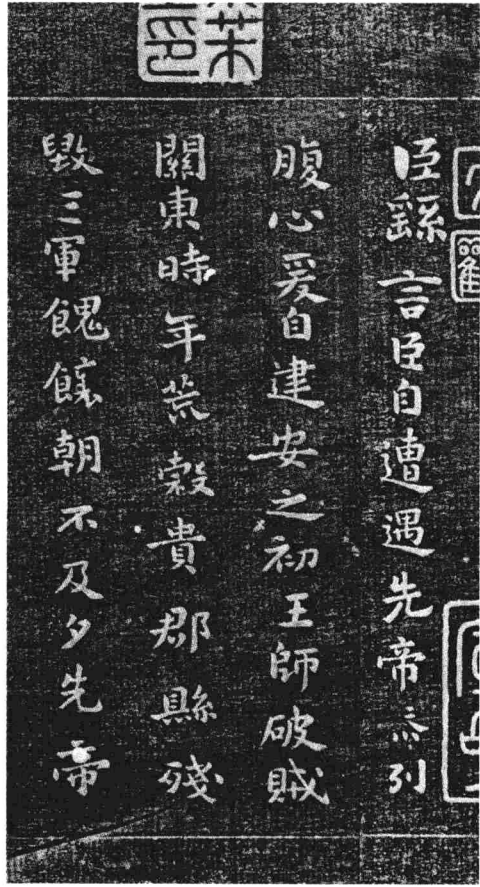 臣繇言臣自遭遇先帝忝列
腹心爰自建安之初王師破賊
關東時年荒穀貴郡縣殘
毀三軍餽饟朝不及夕先帝